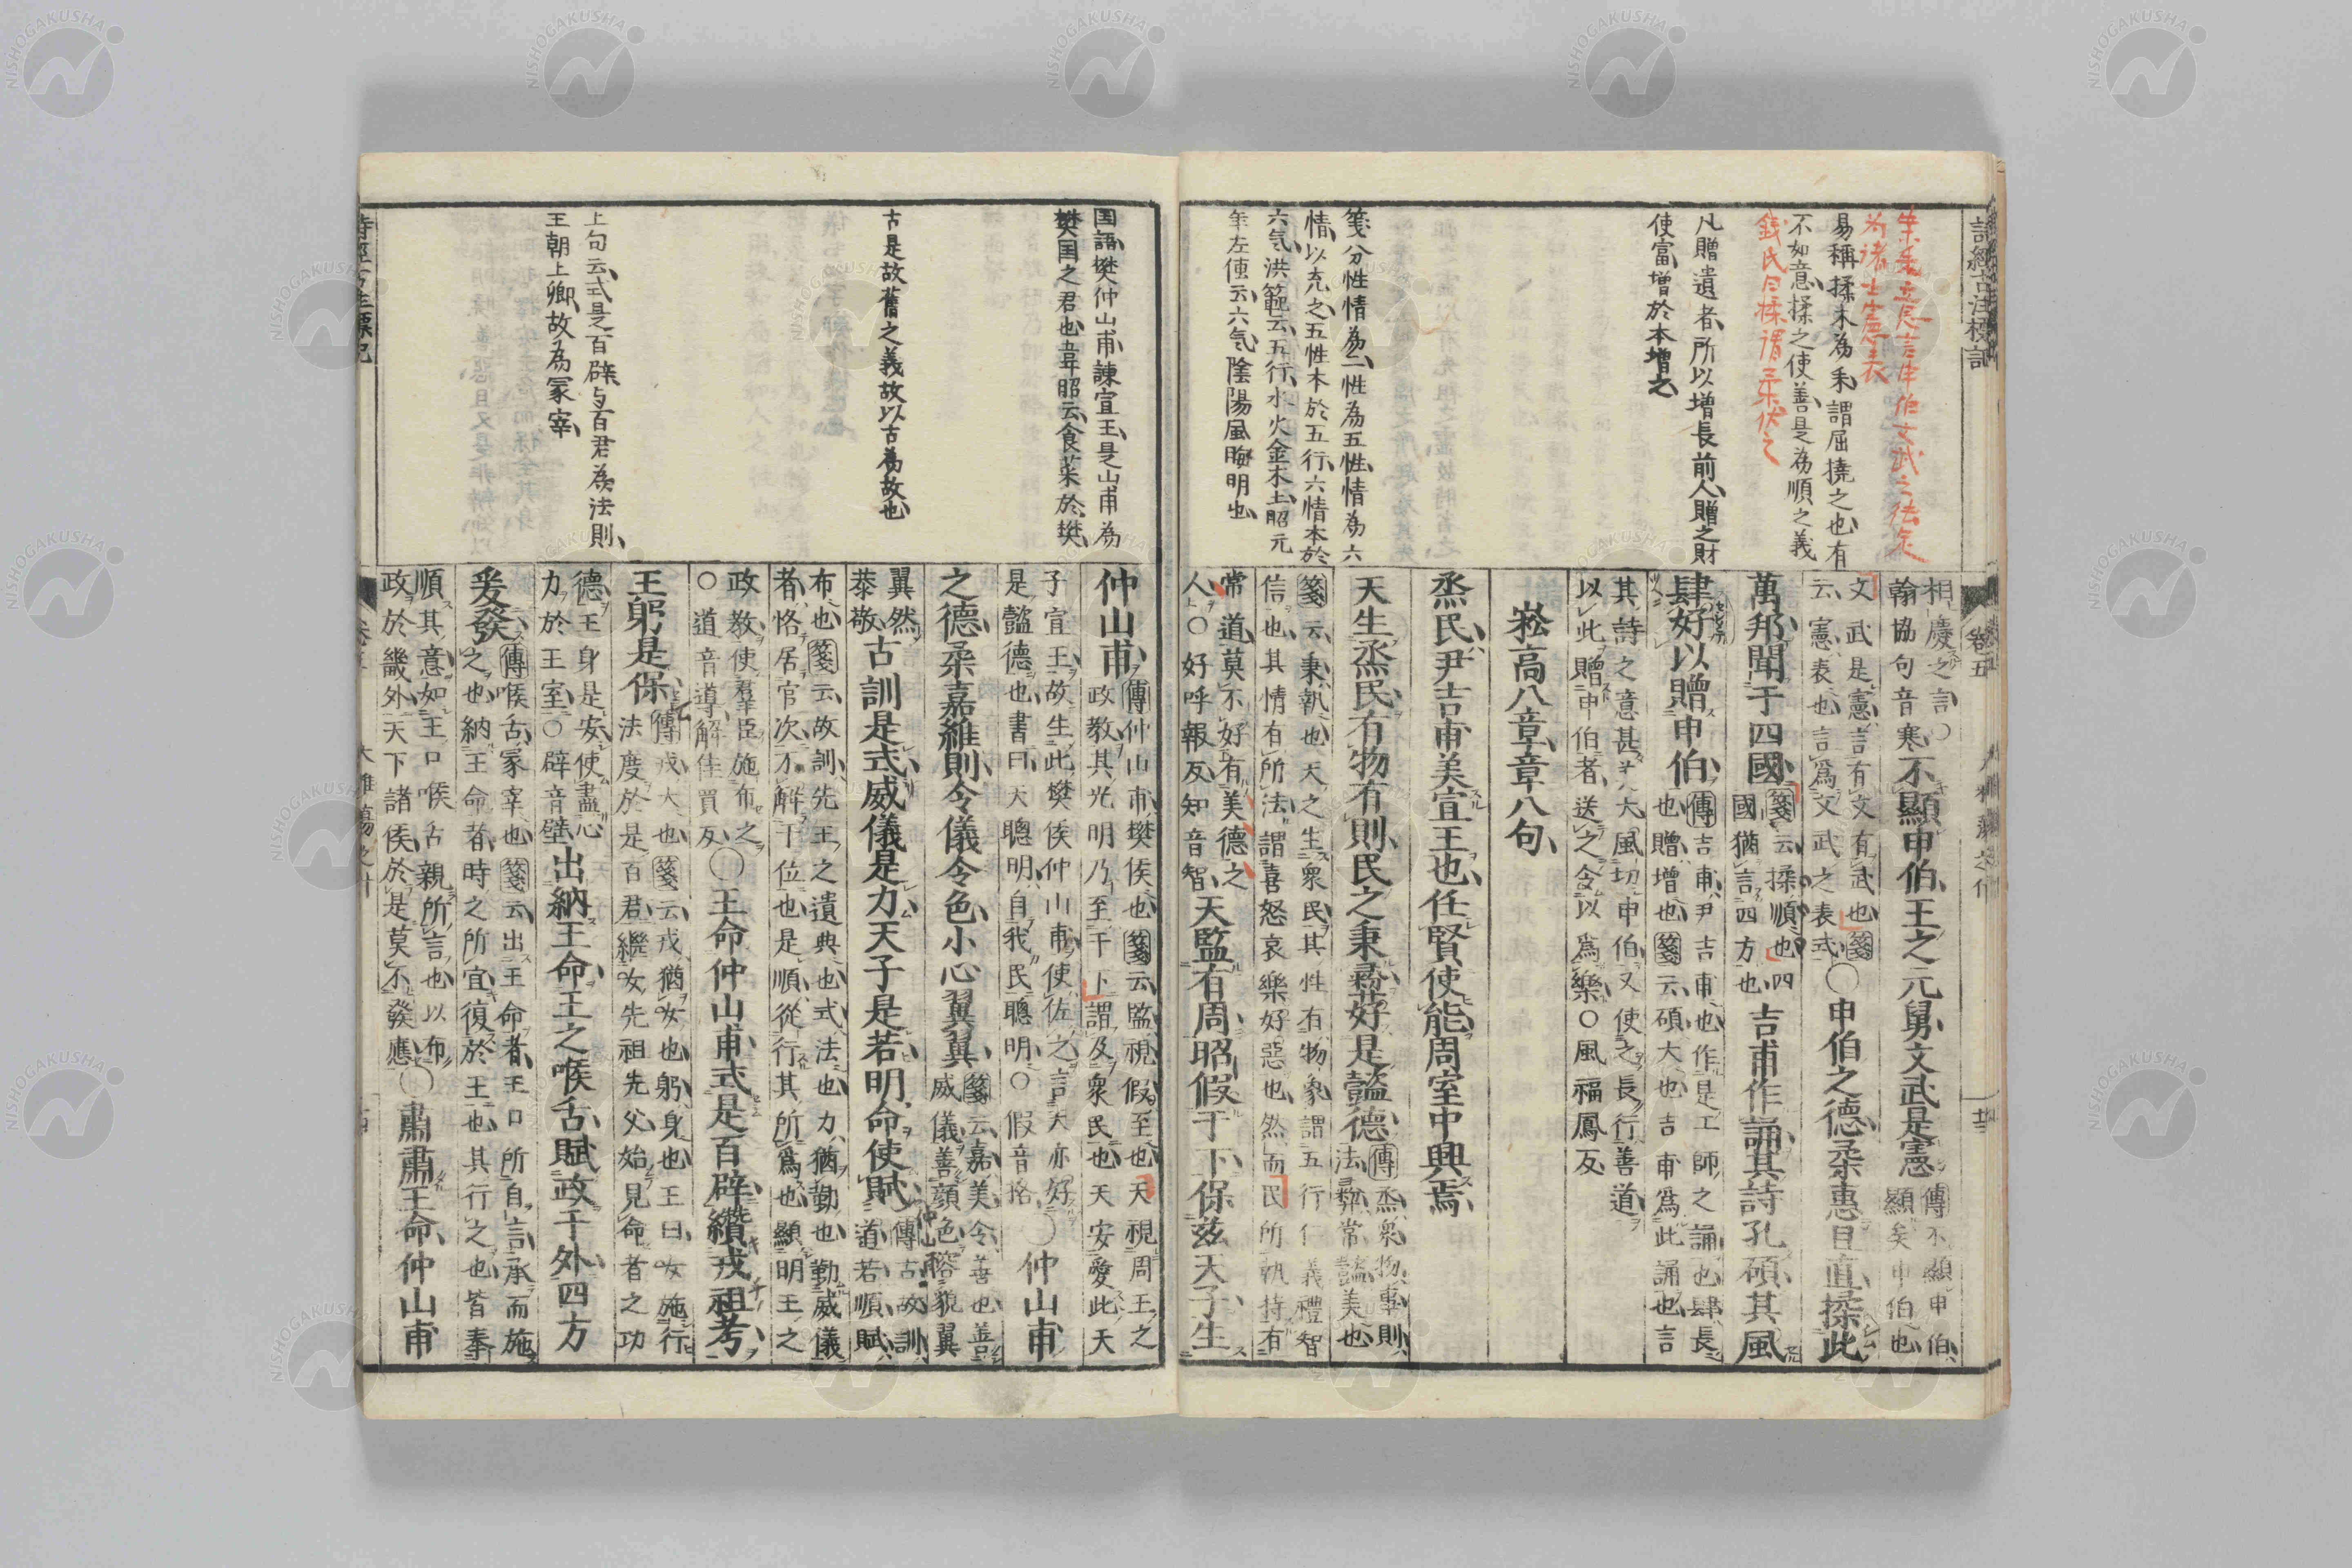 詩經古注標記
卷五
易稱揉木為耒謂屈撓之也有
不如意揉之使善是為順之義
錢氏曰揉謂柔伏之
凡贈遺者所以增長前人贈之財
使富增於本增之
箋分性情為二性為五性情為六
情以充之五性本於五行六情本於
六気洪範云五行水火金木土昭元
年左傳云六気陰陽風晦明也
相慶之言〇
翰協句音寒不顯申伯王之元舅文武是憲傳不顯申伯
顯矣申伯也
文武是憲言有文有武也箋
云憲表也言爲文武之表式〇申伯之德柔惠且直揉此
萬邦聞于四國箋云揉順也四
國猶言四方也吉甫作誦其詩孔碩其風
肆好以贈申伯傳吉甫尹吉甫也作是工師之誦也肆長
也贈增也箋云碩大也吉甫爲此誦也言
其詩之意甚大風切申伯又使之長行善道
以此贈申伯者送之令以爲樂〇風福鳳反
崧高八章章八句
烝民尹吉甫美宣王也任賢使能周室中興焉
天生烝民有物有則民之秉彝好是懿德傳烝衆物事則
法彝常懿美也
箋云秉執也天之生衆民其性有物象謂五行仁義禮智
信也其情有所法謂喜怒哀樂好惡也然而民所執持有
常道莫不好有美德之
人〇好呼報反知音智天監有周昭假于下保茲天子生
国語樊仲山甫諫宣王是山甫為
樊国之君也韋昭云食菜於樊
古是故舊之義故以古為故也
上句云式是百辟与百君為法則
王朝上卿故為冢宰
仲山甫傳仲山甫樊侯也箋云監視假至也天視周王之
政教其光明乃至于下謂及衆民也天安愛此天
子宣王故生此樊侯仲山甫使佐之言天亦好
是懿德也書曰天聰明自我民聰明〇假音格〇仲山甫
之德柔嘉維則令儀令色小心翼翼箋云嘉美令善也善
威儀善顏色容貌翼
翼然
恭敬古訓是式威儀是力天子是若明命使賦傳古故訓
道若順賦
布也箋云故訓先王之遺典也式法也力猶勤也勤威儀
者恪居官次不解于位也是順從行其所爲也顯明王之
政教使群臣施布之
〇道音導解佳買反〇王命仲山甫式是百辟纘戎祖考
王躬是保傳戎大也箋云戎猶女也躬身也王曰女施行
法度於是百君繼女先祖先父始見命者之功
德王身是安使盡心
力於王室〇辟音壁出納王命王之喉舌賦政于外四方
爰發傳喉舌冢宰也箋云出王命者王口所自言承而施
之也納王命者時之所宜復於王也其行之也皆奉
順其意如王口喉舌親所言也以布
政於畿外天下諸侯於是莫不發應〇肅肅王命仲山甫